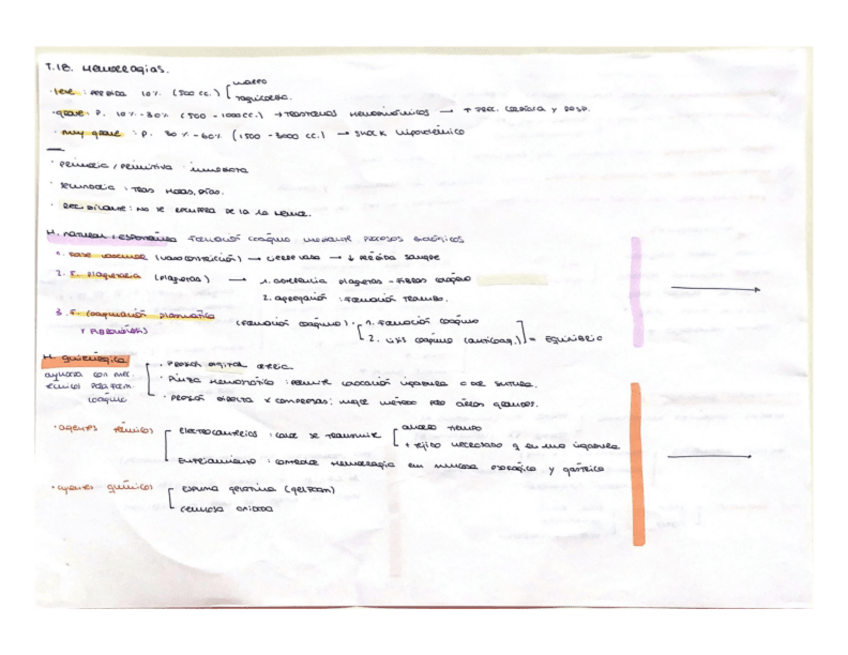 T.18. Hemorragias.
· leve : pérdida 10% (500 cc.) [ mareo
taquicardia.
· grave: P. 10% - 30% (500 - 1000 cc.) → trastornos hemodinámicos → + frec. cardiaca y resp.
· muy grave : P. 30% - 60% (1500 - 3000 cc.) → shock hipovolémico
· Primaria / primitiva : inmediata
· secundaria : tras horas, días.
· Recidivante: no se recupera de la 1a hemo.
H. natural : espontánea formación coágulo mediante procesos biológicos
1. Fase vascular (vasoconstricción) → cierre vaso → ↓ pérdida sangre
2. F. plaquetaria (plaquetas) → 1. adherencia plaquetas - fibras colágeno
2. agregación : formación trombo.
3. F. coagulación plasmática (formación coágulo) · [ 1. formación coágulo
y fibrinólisis 2. lisis coágulo (anticoag.) ] = Equilibrio
H. quirúrgica
ayudada con mec. · Presión digital arteria.
técnicos para form. · Pinza hemostático : permite colocación ligadura o de sutura.
coágulo · Presión directa x compresas; mejor método para áreas grandes.
· agentes térmicos [ Electrocauterios : calor se transmite [ ahorro tiempo
+ tejido necrosado q en una ligadura
Enfriamiento : controlar hemorragia en mucosa esofágica y gástrica
· agentes químicos [ espuma gelatina (gelfoam)
celulosa oxidada